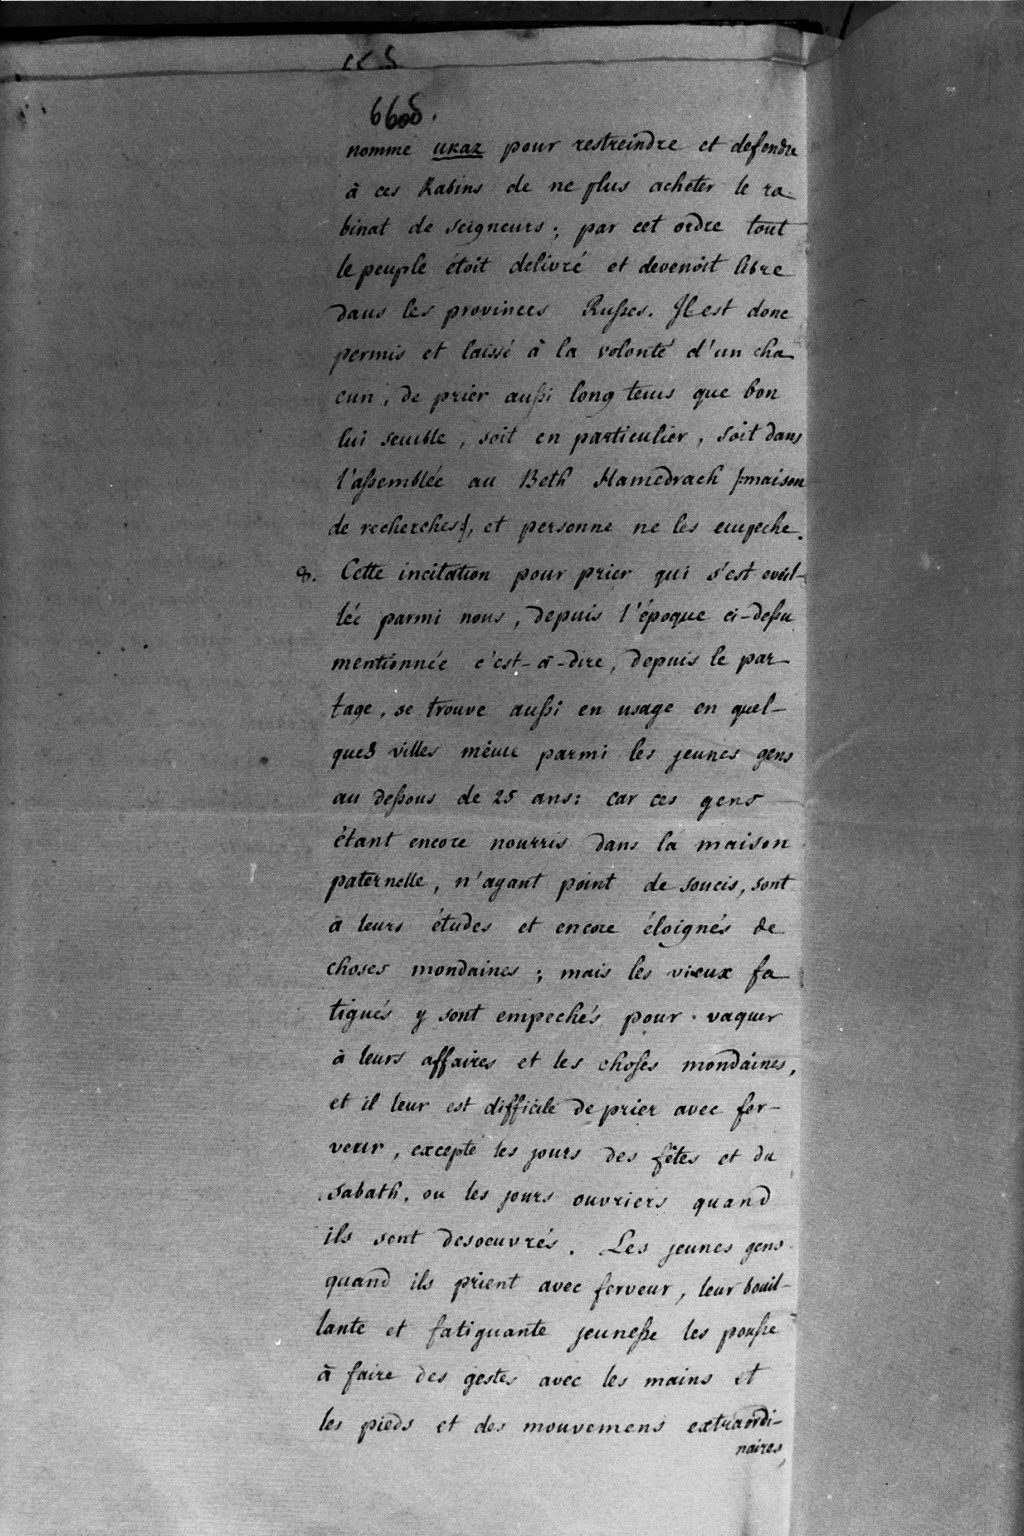 660δ.
nomme ukaz pour restreindre et defendre
à ces Rabins de ne plus acheter le ra-
binat de seigneurs; par cet ordre tout
le peuple étoit delivré et devenoit libre
dans les provinces Rußes. Il est donc
permis et laissé à la volonté d'un cha
cun, de prier außi long tems que bon
lui semble, soit en particulier, soit dans
l'aßemblée au Beth Hamedrach /:maison
de recherches:/, et personne ne les empeche.
8. Cette incitation pour prier qui s'est eveil-
lée parmi nous, depuis l'époque ci-deßu
mentionnée c'est-à-dire, depuis le par-
tage, se trouve außi en usage en quel-
ques villes même parmi les jeunes gens
au deßous de 25 ans: car ces gens
étant encore nourris dans la maison
paternelle, n'ayant point de soucis, sont
à leurs études et encore éloignés de
choses mondaines; mais les vieux fa
tigués y sont empechés pour vaquer
à leurs affaires et les choses mondaines,
et il leur est difficile de prier avec fer-
veur, excepté les jours des fêtes et du
Sabath, ou les jours ouvriers quand
ils sont desoeuvrés. Les jeunes gens
quand ils prient avec ferveur, leur bouil-
lante et fatiguante jeuneße les pouße
à faire des gestes avec les mains et
les pieds et des mouvemens extraordi-
naires,